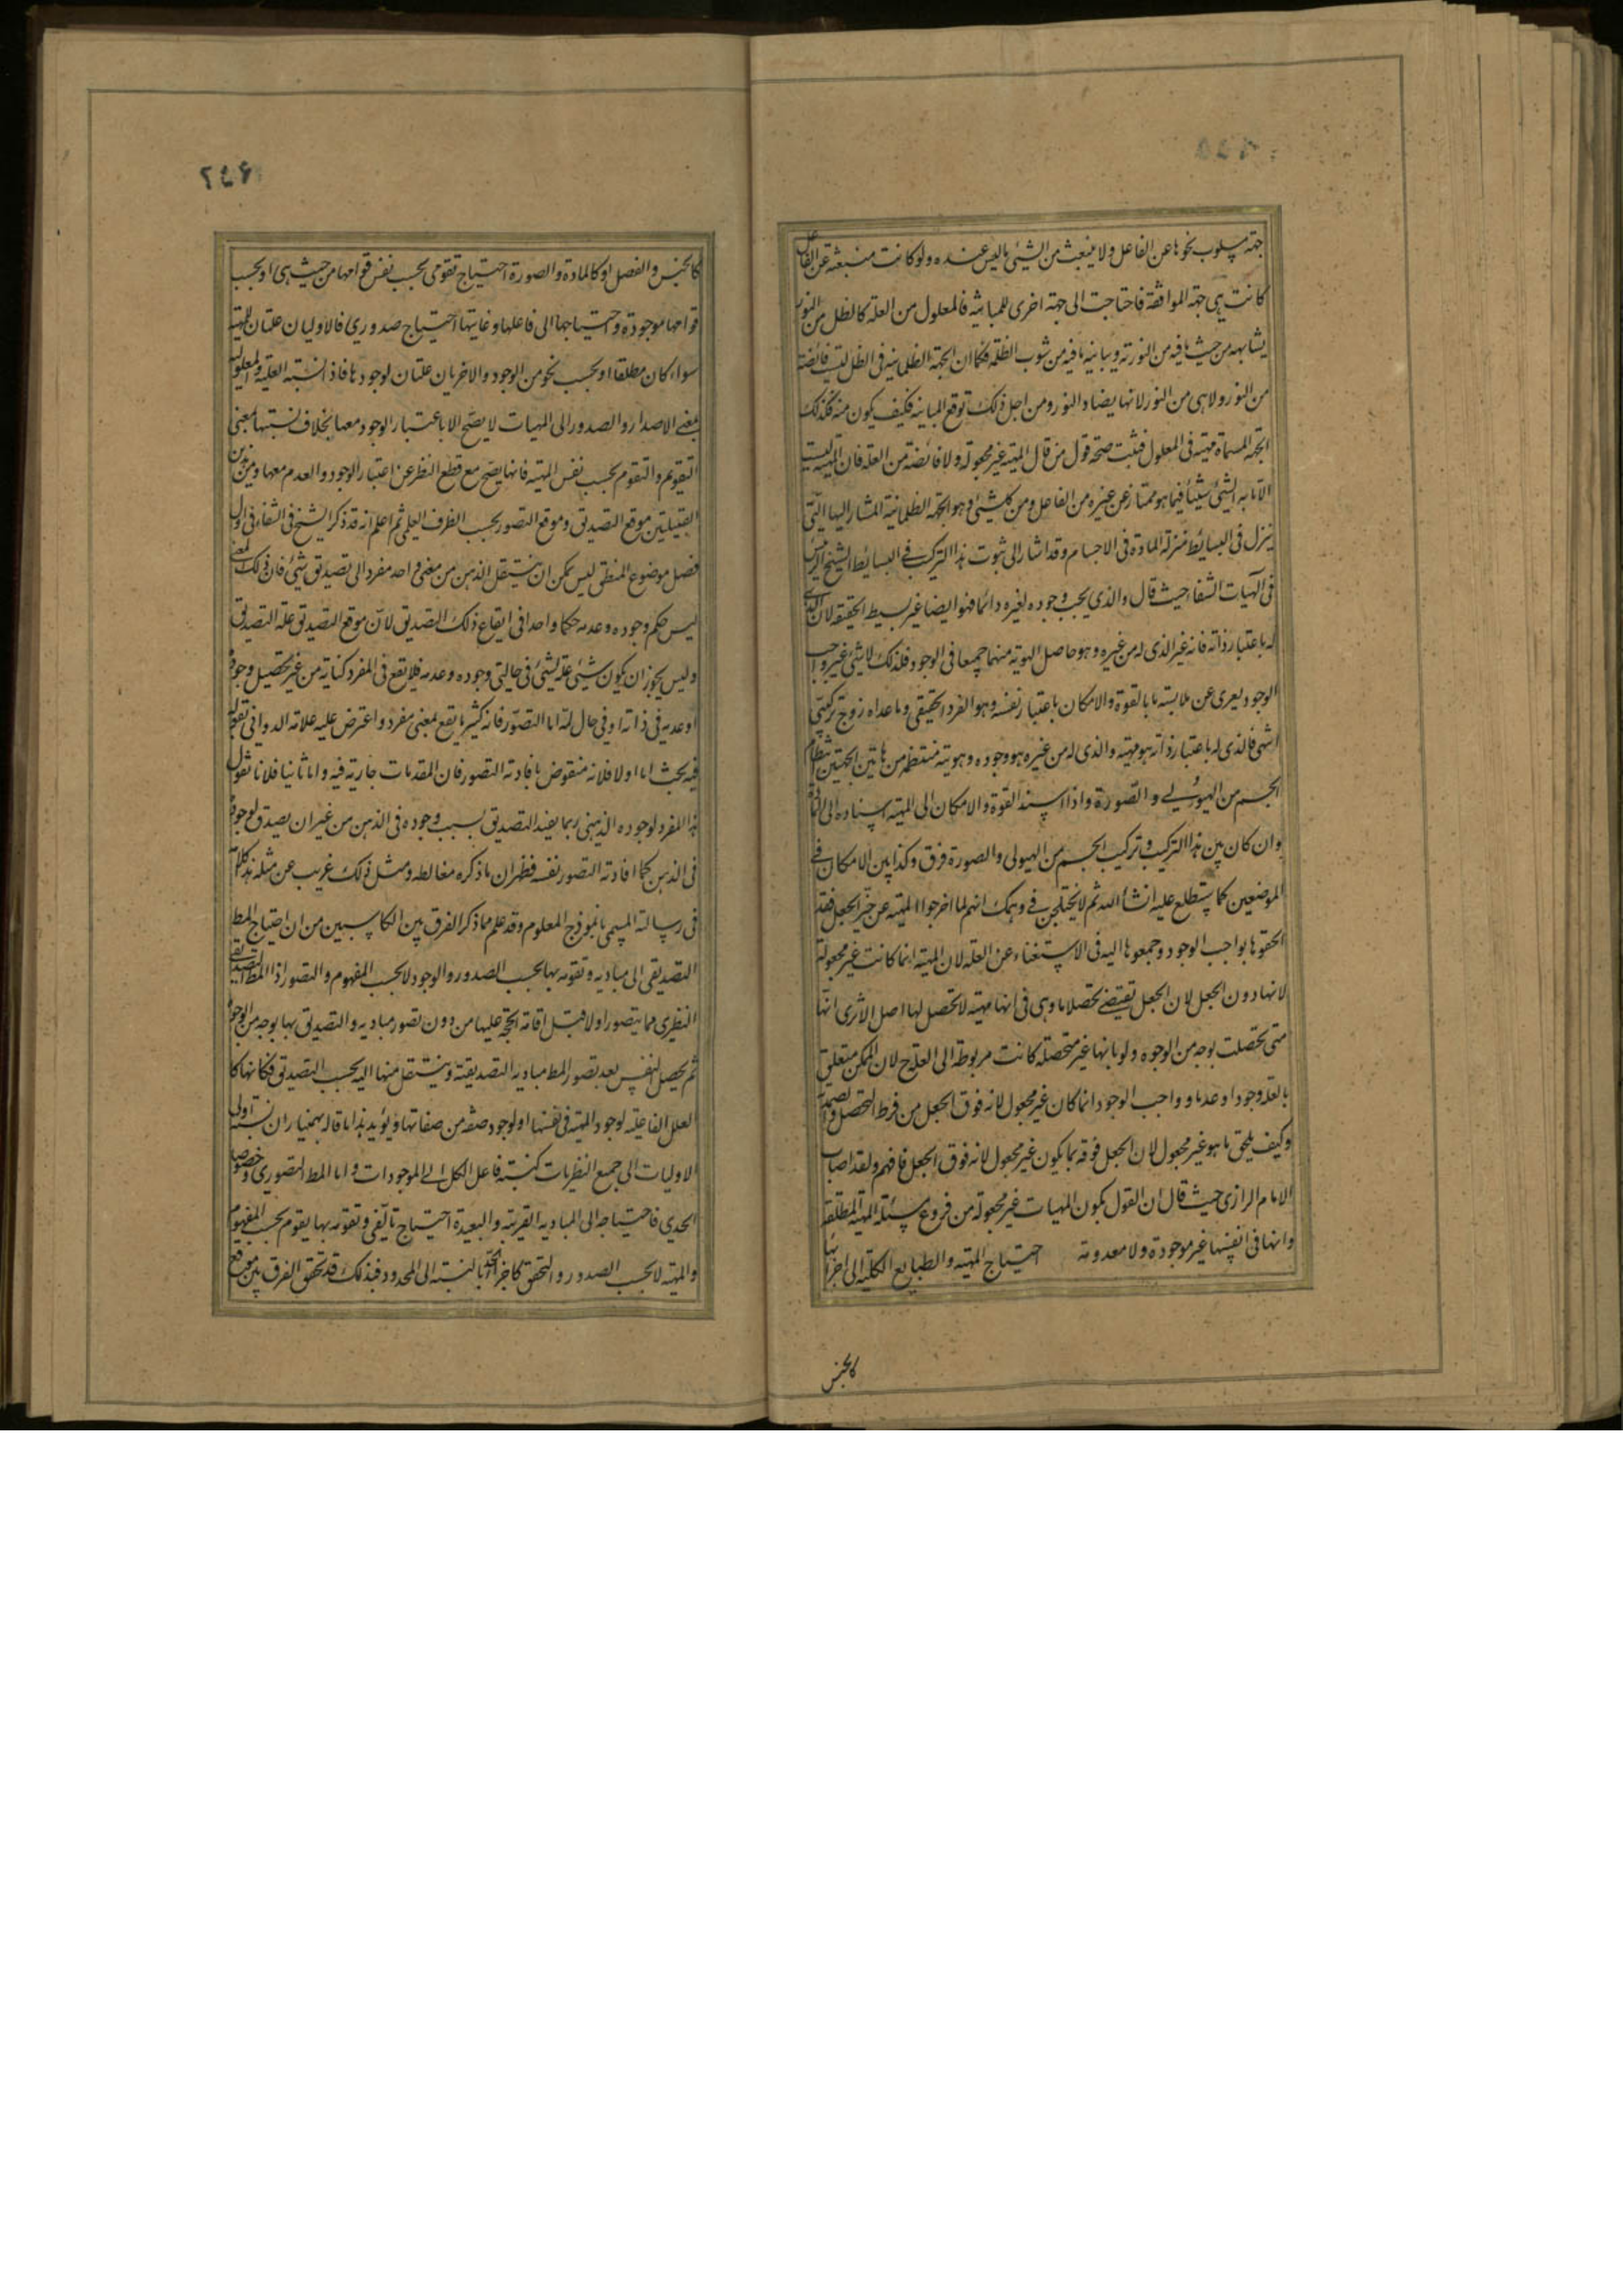 جهة مسلوب نحوها عن الفاعل ولا ينبعث من الشيئ ما ليس عنده ولو كانت منبعثة عن الفاعل
كانت هى جهة الموافقة فاحتاجت الى جهة اخرى للمباينة فالمعلول من العلة كالظل من النور
يشابهه من حيث ما فيه من النورية ويباينه ما فيه من شوب الظلمة فكما ان الجهة الظلمانية فى الظل ليست فائضة
من النور ولا هى من النور لانها يضاد النور ومن اجل ذلك توقع المباينة فكيف يكون منه فكذلك
الجهة المسماة مهية فى المعلول فثبت صحة قول من قال المهية غير مجعولة ولا فائضة من العلة فان المهية ليست
الا ما به الشيئ شيئا فيما هو ممتاز عن غيره من الفاعل ومن كل شيئ وهو الجهة الظلمانية المشار اليها التى
ينزل فى البسائط منزلة المادة فى الاجسام وقد اشار الى ثبوت هذا التركيب فى البسائط الشيخ الرئيس
فى الهيات الشفاء حيث قال والذى يجب وجوده لغيره دائما فهو ايضا غير بسيط الحقيقة لان الذى
له باعتبار ذاته فانه غير الذى له من غيره وهو حاصل الهوية منهما جميعا فى الوجود فلذلك لا شيئ غير واجب
الوجود يعرى عن ملابسة ما بالقوة والامكان باعتبار نفسه وهو الفرد الحقيقى وما عداه زوج تركيبى
انتهى فالذى له باعتبار ذاته هو مهيته والذى له من غيره هو وجوده وهويته منتظمة من هاتين الجهتين انتظام
الجسم من الهيولى والصورة واذا اسند القوة والامكان الى المهية اسناده الى المادة
وان كان بين هذا التركيب وتركيب الجسم من الهيولى والصورة فرق وكذا بين الامكان فى
الموضعين كما ستطلع عليه انشا الله ثم لا يختلجن فى وهمك انهم لما اخرجوا المهية عن حيز الجعل فقد
الحقوها بواجب الوجود وجمعوها اليه فى الاستغناء عن العلة لان المهية انما كانت غير مجعولة
لانها دون الجعل لان الجعل تقيضى تحصلا ما وهى فى انها مهية لا تحصل لها اصلا الا ترى انها
متى تحصلت بوجه من الوجوه ولو بانها غير متحصلة كانت مربوطة الى العلة ح لان الممكن متعلق
بالعلة وجودا وعدما وواجب الوجود انما كان غير مجعول لانه فوق الجعل من فرط التحصل والصمدية
وكيف يلحق ما هو غير مجعول لان الجعل فوقه بما يكون غير مجعول لانه فوق الجعل فافهم ولقد اصاب
الامام الرازى حيث قال ان القول بكون المهيات غير مجعولة من فروع مسئلة المهية المطلقة
وانها فى انفسها غير موجودة ولا معدومة احتياج المهية والطبايع الكلية الى اجزائها
كالجنس
٢٤٦
كالجنس والفصل او كالمادة والصورة احتياج تقومى بحسب نفس قوامها من حيث هى او بحسب
قوامها موجودة واحتياجها الى فاعلها وغايتها احتياج صدورى فالاوليان علتان للمهية
سواء كان مطلقا او بحسب نحو من الوجود والاخريان علتان لوجودها فاذن نسبة العلية والمعلولية
بمعنى الاصدار والصدور الى المهيات لا يصح الا باعتبار الوجود معها بخلاف نسبتها بمعنى
التقويم والتقوم بحسب نفس المهية فانها يصح مع قطع النظر عن اعتبار الوجود والعدم معها ومن هذين
القبيلتين موقع التصديق وموقع التصور بحسب الظرف العلمى ثم اعلم انه قد ذكر الشيخ فى الشفاء فى اول
فصل موضوع المنطق ليس يمكن ان ينتقل الذهن من معنى واحد مفرد الى تصديق شيئ فان ذلك المعنى
ليس حكم وجوده وعدمه حكما واحدا فى ايقاع ذلك التصديق لان موقع التصديق علة التصديق
وليس يجوز ان يكون شيئ علة لشيئ فى حالتى وجوده وعدمه فلا يقع فى المفرد كفاية من غير تحصيل وجوده
او عدمه فى ذاته او فى حال له اما التصور فانه كثيرا ما يقع بمعنى مفرد واعترض عليه علامة الدوانى بقوله
فيه بحث اما اولا فلانه منقوض بافادته التصور فان المقدمات جارية فيه واما ثانيا فلانا نقول
هذا المفرد لوجوده الذهنى ربما يفيد التصديق بسبب وجوده فى الذهن من غير ان يصدق لوجوده
فى الذهن كما افادته التصور نفسه فظهر ان ما ذكره مغالطة ومثل ذلك غريب عن مثله هذا كلامه
فى رسالته المسمى بانموذج العلوم وقد علم مما ذكر الفرق بين الكاسبين من ان احتياج المط
التصديقى الى مباديه وتقومه بها بحسب الصدور والوجود لا بحسب المفهوم والتصور اذ المط التصديقى
النظرى مما يتصور اولا قبل اقامة الحجة عليها من دون تصور مباديه والتصديق بها بوجه من الوجوه
ثم يحصل للنفس بعد تصور المط مباديه التصديقية وينتقل منها اليه بحسب التصديق فكانها كا
لعلل الفاعلية لوجود المهية فى نفسها او لوجود صفة من صفاتها ويؤيد هذا ما قاله بهمنيار ان نسبة اولى
الاوليات الى جميع النظريات كنسبة فاعل الكل الى الموجودات واما المط التصورى وخصوصا
الحدى فاحتياجه الى المبادى القريبة والبعيدة احتياج تالفى وتقومه بها يقوم بحسب المفهوم
والمهية لا بحسب الصدور والتحقق كاجزاء الحد بالنسبة الى المحدود فبذلك قد تحقق الفرق بين موقع